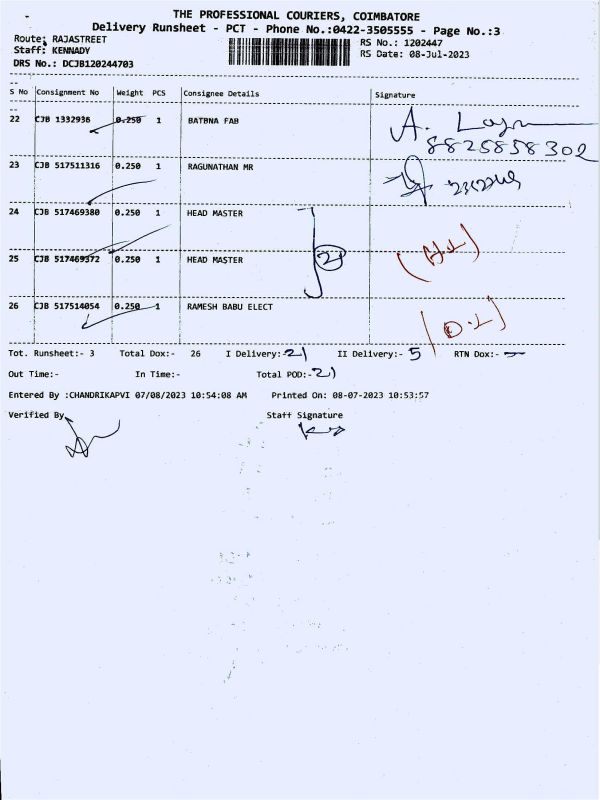 THE PROFESSIONAL COURIERS, COIMBATORE
Delivery Runsheet - PCT - Phone No.:0422-3505555 - Page No.:3
Route: RAJASTREET
RS No.: 1202447
Staff: KENNADY
RS Date: 08-Jul-2023
DRS No.: DCJB120244703
S No Consignment No Weight PCS Consignee Details Signature
22 CJB 1332936 0.250 1 BATBNA FAB A.
8825858302
23 CJB 517511316 0.250 1 RAGUNATHAN MR
24 CJB 517469380 0.250 1 HEAD MASTER
25 CJB 517469372 0.250 1 HEAD MASTER
26 CJB 517514054 0.250 1 RAMESH BABU ELECT
Tot. Runsheet:- 3 Total Dox:- 26 I Delivery:- 21 II Delivery:- 5 RTN Dox:- -
Out Time:- In Time:- Total POD:- 21
Entered By :CHANDRIKAPVI 07/08/2023 10:54:08 AM Printed On: 08-07-2023 10:53:57
Verified By Staff Signature